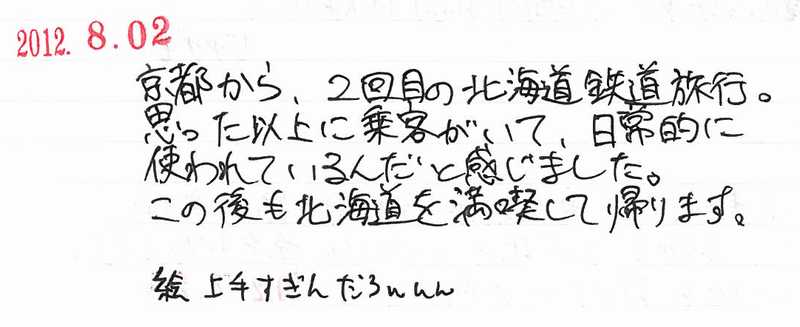 2012. 8.02
京都から、2回目の北海道鉄道旅行。
思った以上に乗客がいて、日常的に
使われているんだと感じました。
この後も北海道を満喫して帰ります。
絵上手すぎんだろwww